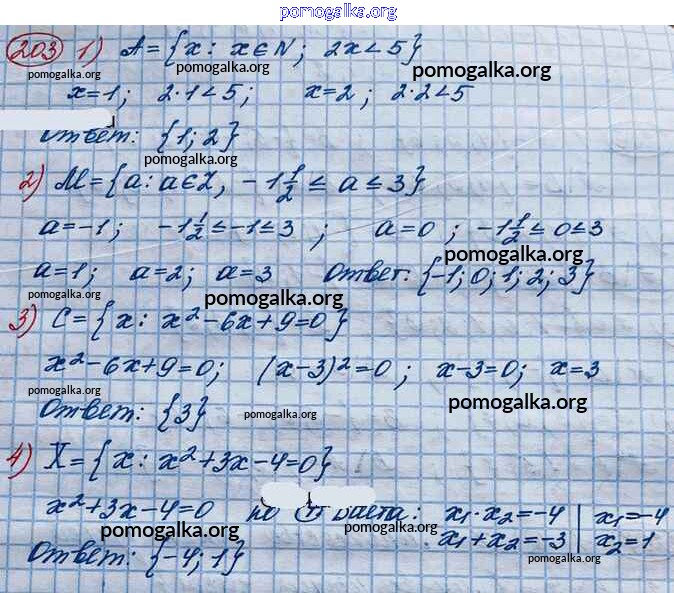 pomogalka.org
203 1) A={x: x∈N; 2x<5}
pomogalka.org pomogalka.org pomogalka.org
x=1; 2·1<5; x=2; 2·2<5
Ответ: {1; 2}
pomogalka.org
2) M={a: a∈Z, -1 1/2 ≤ a ≤ 3}
a=-1; -1 1/2 ≤ -1 ≤ 3; a=0; -1 1/2 ≤ 0 ≤ 3
pomogalka.org
a=1; a=2; a=3 Ответ: {-1; 0; 1; 2; 3}
pomogalka.org pomogalka.org
3) C={x: x²-6x+9=0}
x²-6x+9=0; (x-3)²=0; x-3=0; x=3
pomogalka.org pomogalka.org
Ответ: {3}
pomogalka.org
4) X={x: x²+3x-4=0}
x²+3x-4=0 по Виета: x₁·x₂=-4 | x₁=-4
pomogalka.org pomogalka.org
x₁+x₂=-3 | x₂=1
Ответ: {-4; 1}
pomogalka.org